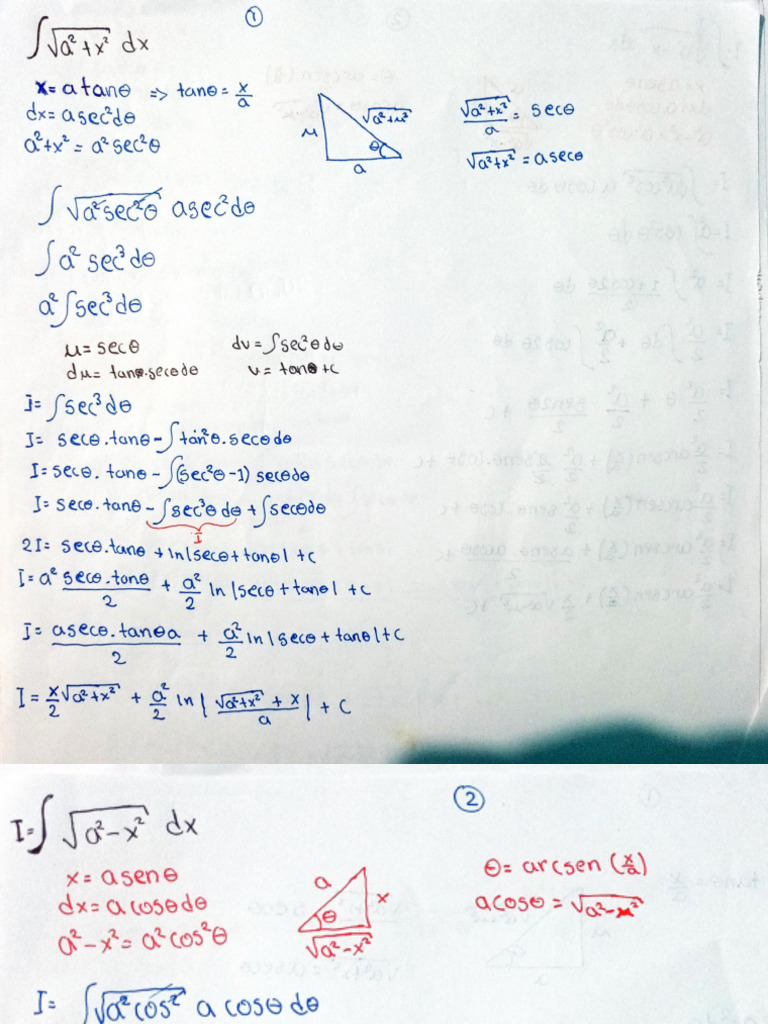 ①
∫ √(a²+x²) dx
x = a tanθ => tanθ = x/a
dx = a sec²dθ
a²+x² = a² sec²θ
μ √(a²+μ²) θ a
√(a²+x²)/a = secθ
√(a²+x²) = a secθ
∫ √(a² sec²θ) a sec²dθ
∫ a² sec³dθ
a² ∫ sec³dθ
μ = secθ dv = ∫ sec²θ dθ
dμ = tanθ . secθ dθ v = tanθ + c
I = ∫ sec³dθ
I = secθ . tanθ - ∫ tan²θ . secθ dθ
I = secθ . tanθ - ∫ (sec²θ - 1) secθ dθ
I = secθ . tanθ - ∫ sec³θ dθ + ∫ secθ dθ
I
2I = secθ . tanθ + ln|secθ + tanθ| + c
I = a² secθ . tanθ/2 + a²/2 ln|secθ + tanθ| + c
I = a secθ . tanθ a/2 + a²/2 ln|secθ + tanθ| + c
I = x/2 √(a²+x²) + a²/2 ln|(√(a²+x²) + x)/a| + c
②
I = ∫ √(a²-x²) dx
x = a senθ
dx = a cosθ dθ
a²-x² = a² cos²θ
a x θ √(a²-x²)
θ = arcsen (x/a)
a cosθ = √(a²-x²)
I = ∫ √(a² cos²) a cosθ dθ